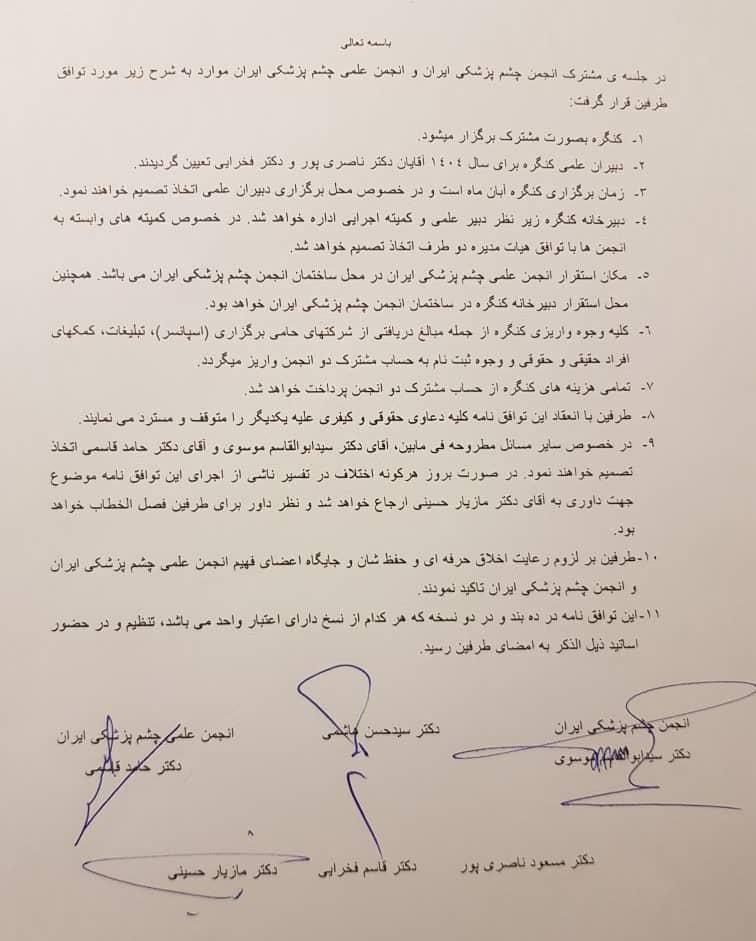 باسمه تعالی
در جلسه ی مشترک انجمن چشم پزشکی ایران و انجمن علمی چشم پزشکی ایران موارد به شرح زیر مورد توافق
طرفین قرار گرفت:
۱- کنگره بصورت مشترک برگزار میشود.
۲- دبیران علمی کنگره برای سال ۱۴۰۴ آقایان دکتر ناصری پور و دکتر فخرایی تعیین گردیدند.
۳- زمان برگزاری کنگره آبان ماه است و در خصوص محل برگزاری دبیران علمی اتخاذ تصمیم خواهند نمود.
۴- دبیرخانه کنگره زیر نظر دبیر علمی و کمیته اجرایی اداره خواهد شد. در خصوص کمیته های وابسته به
انجمن ها با توافق هیات مدیره دو طرف اتخاذ تصمیم خواهد شد.
۵- مکان استقرار انجمن علمی چشم پزشکی ایران در محل ساختمان انجمن چشم پزشکی ایران می باشد. همچنین
محل استقرار دبیرخانه کنگره در ساختمان انجمن چشم پزشکی ایران خواهد بود.
۶- کلیه وجوه واریزی کنگره از جمله مبالغ دریافتی از شرکتهای حامی برگزاری (اسپانسر)، تبلیغات، کمکهای
افراد حقیقی و حقوقی و وجوه ثبت نام به حساب مشترک دو انجمن واریز میگردد.
۷- تمامی هزینه های کنگره از حساب مشترک دو انجمن پرداخت خواهد شد.
۸- طرفین با انعقاد این توافق نامه کلیه دعاوی حقوقی و کیفری علیه یکدیگر را متوقف و مسترد می نمایند.
۹- در خصوص سایر مسائل مطروحه فی مابین، آقای دکتر سیدابوالقاسم موسوی و آقای دکتر حامد قاسمی اتخاذ
تصمیم خواهند نمود. در صورت بروز هرگونه اختلاف در تفسیر ناشی از اجرای این توافق نامه موضوع
جهت داوری به آقای دکتر مازیار حسینی ارجاع خواهد شد و نظر داور برای طرفین فصل الخطاب خواهد
بود.
۱۰-طرفین بر لزوم رعایت اخلاق حرفه ای و حفظ شان و جایگاه اعضای فهیم انجمن علمی چشم پزشکی ایران
و انجمن چشم پزشکی ایران تاکید نمودند.
۱۱-این توافق نامه در ده بند و در دو نسخه که هر کدام از نسخ دارای اعتبار واحد می باشد، تنظیم و در حضور
اساتید ذیل الذکر به امضای طرفین رسید.
انجمن چشم پزشکی ایران دکتر سیدحسن هاشمی انجمن علمی چشم پزشکی ایران
دکتر سیدابوالقاسم موسوی دکتر حامد قاسمی
دکتر مسعود ناصری پور دکتر قاسم فخرایی دکتر مازیار حسینی